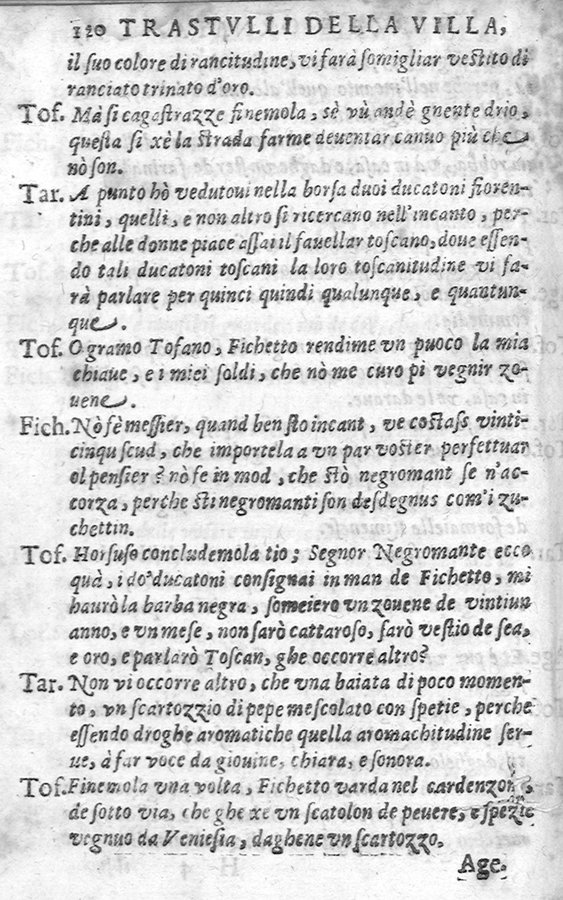 120 TRASTVLLI DELLA VILLA,
il suo colore di rancitudine, vi farà somigliar vestito di
ranciato trinato d'oro.
Tof. Mà si cagastrazze finemola, sè vù andè gnente drio,
questa si xè la strada farme deuentar canuo più che
nò son.
Tar. A punto hò vedutoui nella borsa duoi ducatoni fioren-
tini, quelli, e non altro si ricercano nell'incanto, per-
che alle donne piace assai il fauellar toscano, doue essen-
do tali ducatoni toscani la loro toscanitudine vi fa-
rà parlare per quinci quindi qualunque, e quantun-
que.
Tof. O gramo Tofano, Fichetto rendime vn puoco la mia
chiaue, e i miei soldi, che nò me curo pi vegnir zo-
uene.
Fich. Nò fè messier, quand ben sto incant, ve costass vinti-
cinqu scud, che importela a vn par voster perfettuar
ol pensier? nò fe in mod, che stò negromant se n'ac-
corza, perche sti negromanti son desdegnus com'i zu-
chettin.
Tof. Horsuso concludemola tio; Segnor Negromante ecco
quà, i do ducatoni consignai in man de Fichetto, mi
haurò la barba negra, someiero vn zouene de vintiun
anno, e vn mese, non sarò cattaroso, sarò vestio de sea,
e oro, e parlarò Toscan, ghe occorre altro?
Tar. Non vi occorre altro, che vna baiata di poco momen-
to, vn scartozzio di pepe mescolato con spetie, perche
essendo droghe aromatiche quella aromachitudine ser-
ue, à far voce da giouine, chiara, e sonora.
Tof. Finemola vna volta, Fichetto varda nel cardenzon,
de sotto via, che ghe xe vn scatolon de peuere, e spezie
vegnuo da Veniesia, daghene vn scartozzo.
Age.